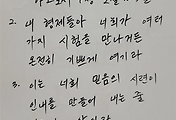 2. 내 형제들아 너희가 여러
가지 시험을 만나거든
온전히 기쁘게 여기라
3. 이는 너희 믿음의 시련이
인내를 만들어 내는 줄